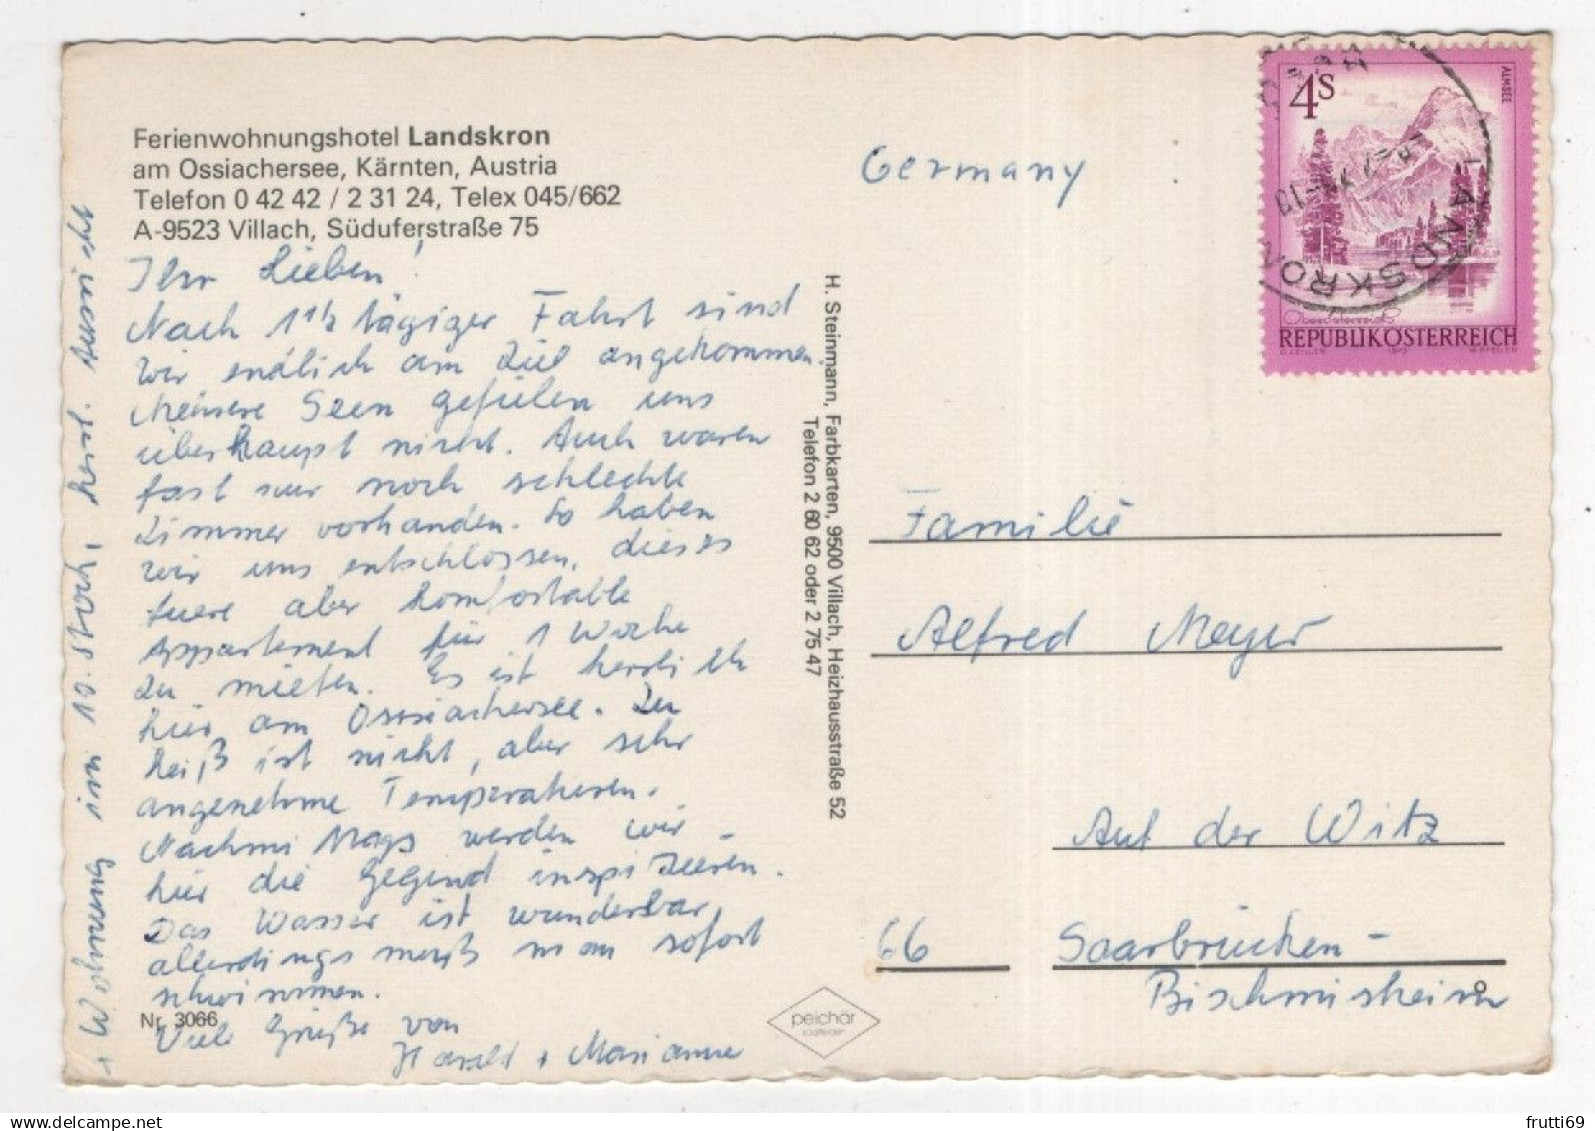 Ferienwohnungshotel Landskron
am Ossiachersee, Kärnten, Austria
Telefon 0 42 42 / 2 31 24, Telex 045/662
A-9523 Villach, Süduferstraße 75
Ihr Lieben!
Nach 1 1/2 tägiger Fahrt sind
wir endlich am Ziel angekommen.
Mehrere Seen gefielen uns
überhaupt nicht. Auch waren
fast nur noch schlechte
Zimmer vorhanden. So haben
wir uns entschlossen, dieses
teure aber komfortable
Appartement für 1 Woche
zu mieten. Es ist herrlich
hier am Ossiachersee. Zu
heiß ist nicht, aber sehr
angenehme Temperaturen.
Nachmittags werden wir
hier die Gegend inspizieren.
Das Wasser ist wunderbar,
allerdings muß man sofort
schwimmen.
Viele Grüße von
Harald + Marianne
Wohnung im 10. Stock, herrl. Aussicht
Nr. 3066
H. Steinmann, Farbkarten, 9500 Villach, Heizhausstraße 52
Telefon 2 60 62 oder 2 75 47
peichar
Germany
4S
ALMSEE
LANDSKRON
Oberösterreich
REPUBLIK ÖSTERREICH
Familie
Alfred Meyer
Auf der Witz
66 Saarbrücken-
Bischmisheim
frutti69